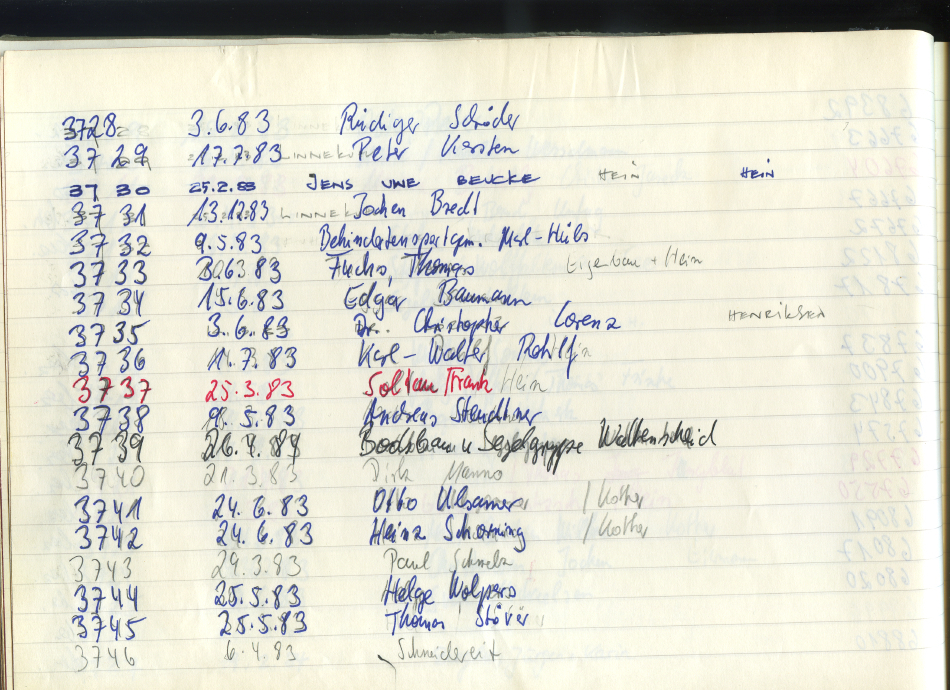 3728 3.6.83 Rüdiger Schröder
3729 17.7.83 Peter Kersten
3730 25.2.83 JENS UWE BEUCKE HEIN HEIN
3731 13.12.83 Jochen Bredt
3732 9.5.83
3733 83 Fuchs, Thomas Eigenbau + Hein
3734 15.6.83 Edgar Baumann
3735 3.6.83 Dr. Christopher Lorenz HENRIKSEN
3736 7.83 Karl-Walter
3737 25.3.83 Soltau Frank Hein
3738 5.83 Andreas
3739 Bootsbau u Segelgruppe Wattenscheid
3740 21.3.83 Dirk Manno
3741 24.6.83 Otto Ulsamer / Kother
3742 24.6.83 Heinz / Kother
3743 29.3.83 Paul Schmelz
3744 25.5.83 Helge Wolpers
3745 25.5.83 Thomas Stöver
3746 6.4.83 Schneidereit